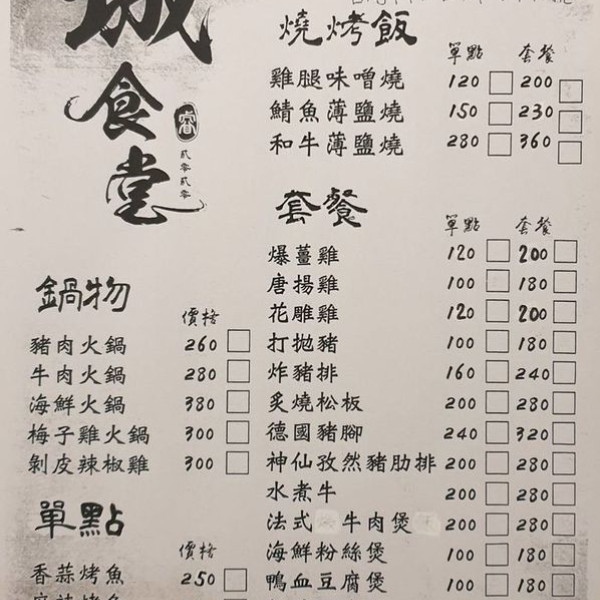 食堂
貳零貳零
鍋物
價格
豬肉火鍋 260
牛肉火鍋 280
海鮮火鍋 380
梅子雞火鍋 300
剝皮辣椒雞 300
單點
價格
香蒜烤魚 250
燒烤飯
單點 套餐
雞腿味噌燒 120 200
鯖魚薄鹽燒 150 230
和牛薄鹽燒 280 360
套餐
單點 套餐
爆薑雞 120 200
唐揚雞 100 180
花雕雞 120 200
打拋豬 100 180
炸豬排 160 240
炙燒松板 200 280
德國豬腳 240 320
神仙孜然豬肋排 200 280
水煮牛 200 280
法式 牛肉煲 200 280
海鮮粉絲煲 100 180
鴨血豆腐煲 100 180